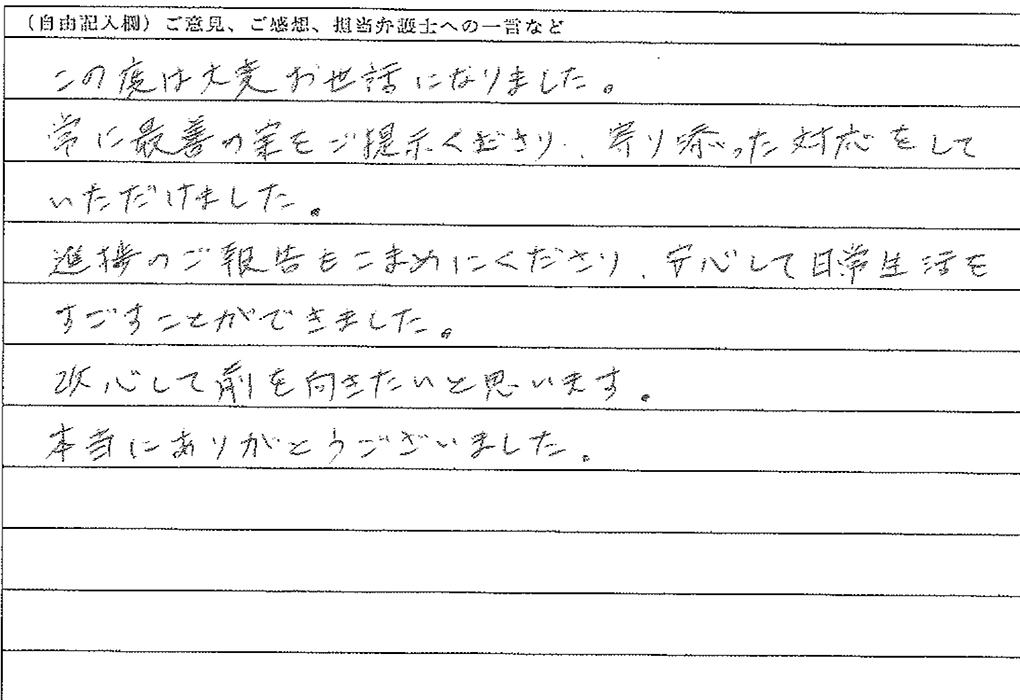 （自由記入欄）ご意見、ご感想、担当弁護士への一言など
この度は大変お世話になりました。
常に最善の案をご提示くださり、寄り添った対応をして
いただけました。
進捗のご報告もこまめにくださり、安心して日常生活を
すごすことができました。
改心して前を向きたいと思います。
本当にありがとうございました。